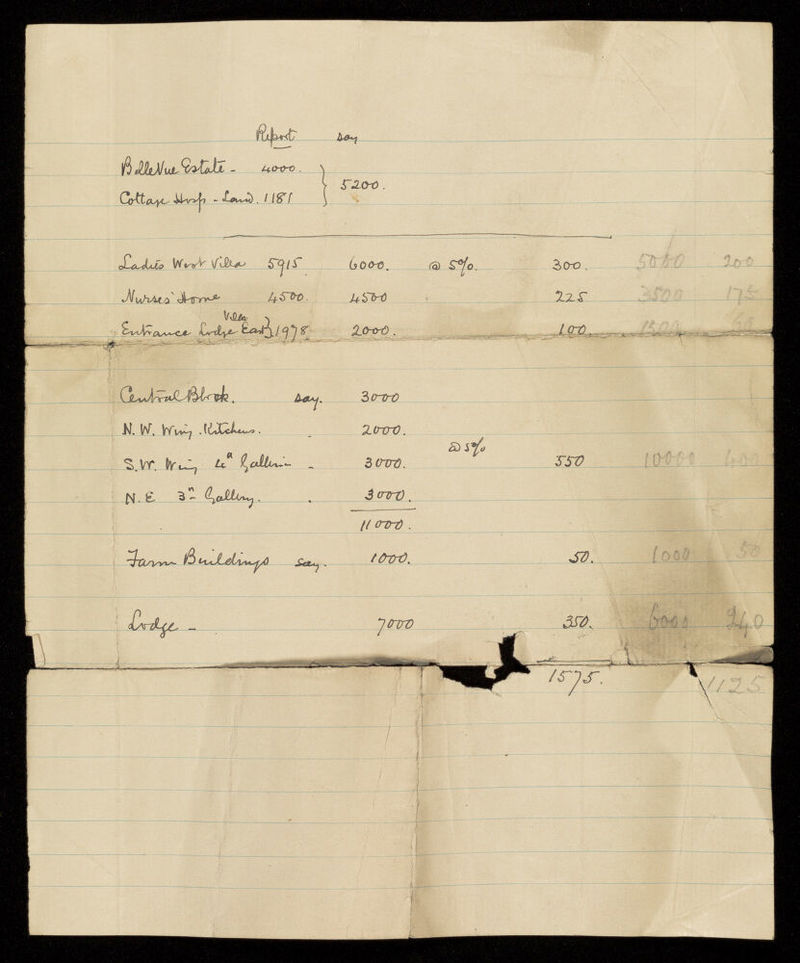 Report say
Belle Vue Estate - 4000.
5200.
Cottage Hosp - Land. 1181
Ladies West Villa 5915 6000. @ 5%. 300. 5000 200
Nurses' Home 4500. 4500 225 3500 175
Villa
Entrance Lodge East 1978 2000. 100. 1500
Central Block. say. 3000
N. W. Wing. Kitchens. . 2000.
@ 5%
S. W. Wing Galleries - 3000. 550 10000
N. E 3 Gallery. . 3000.
11000.
Farm Buildings say. 1000. 50. 1000 50
Lodge - 7000 350. 6000 240
1575. 1125